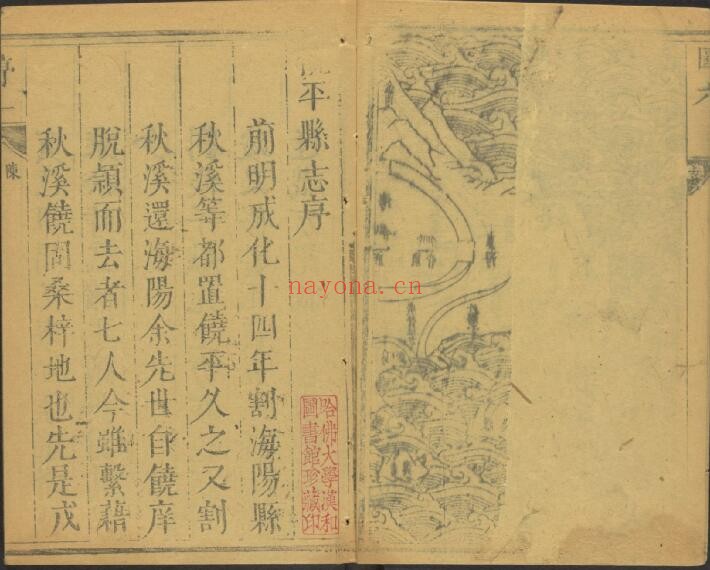 平縣志序
前明成化十四年割海陽縣
秋溪等都置饒平久之又割
秋溪還海陽余先世自饒庠
脫頴而去者七人今雖繫藉
秋溪饒固桑梓地也先是戊
序一
陳
哈佛大學漢和
圖書館珍藏印
nayona.cn